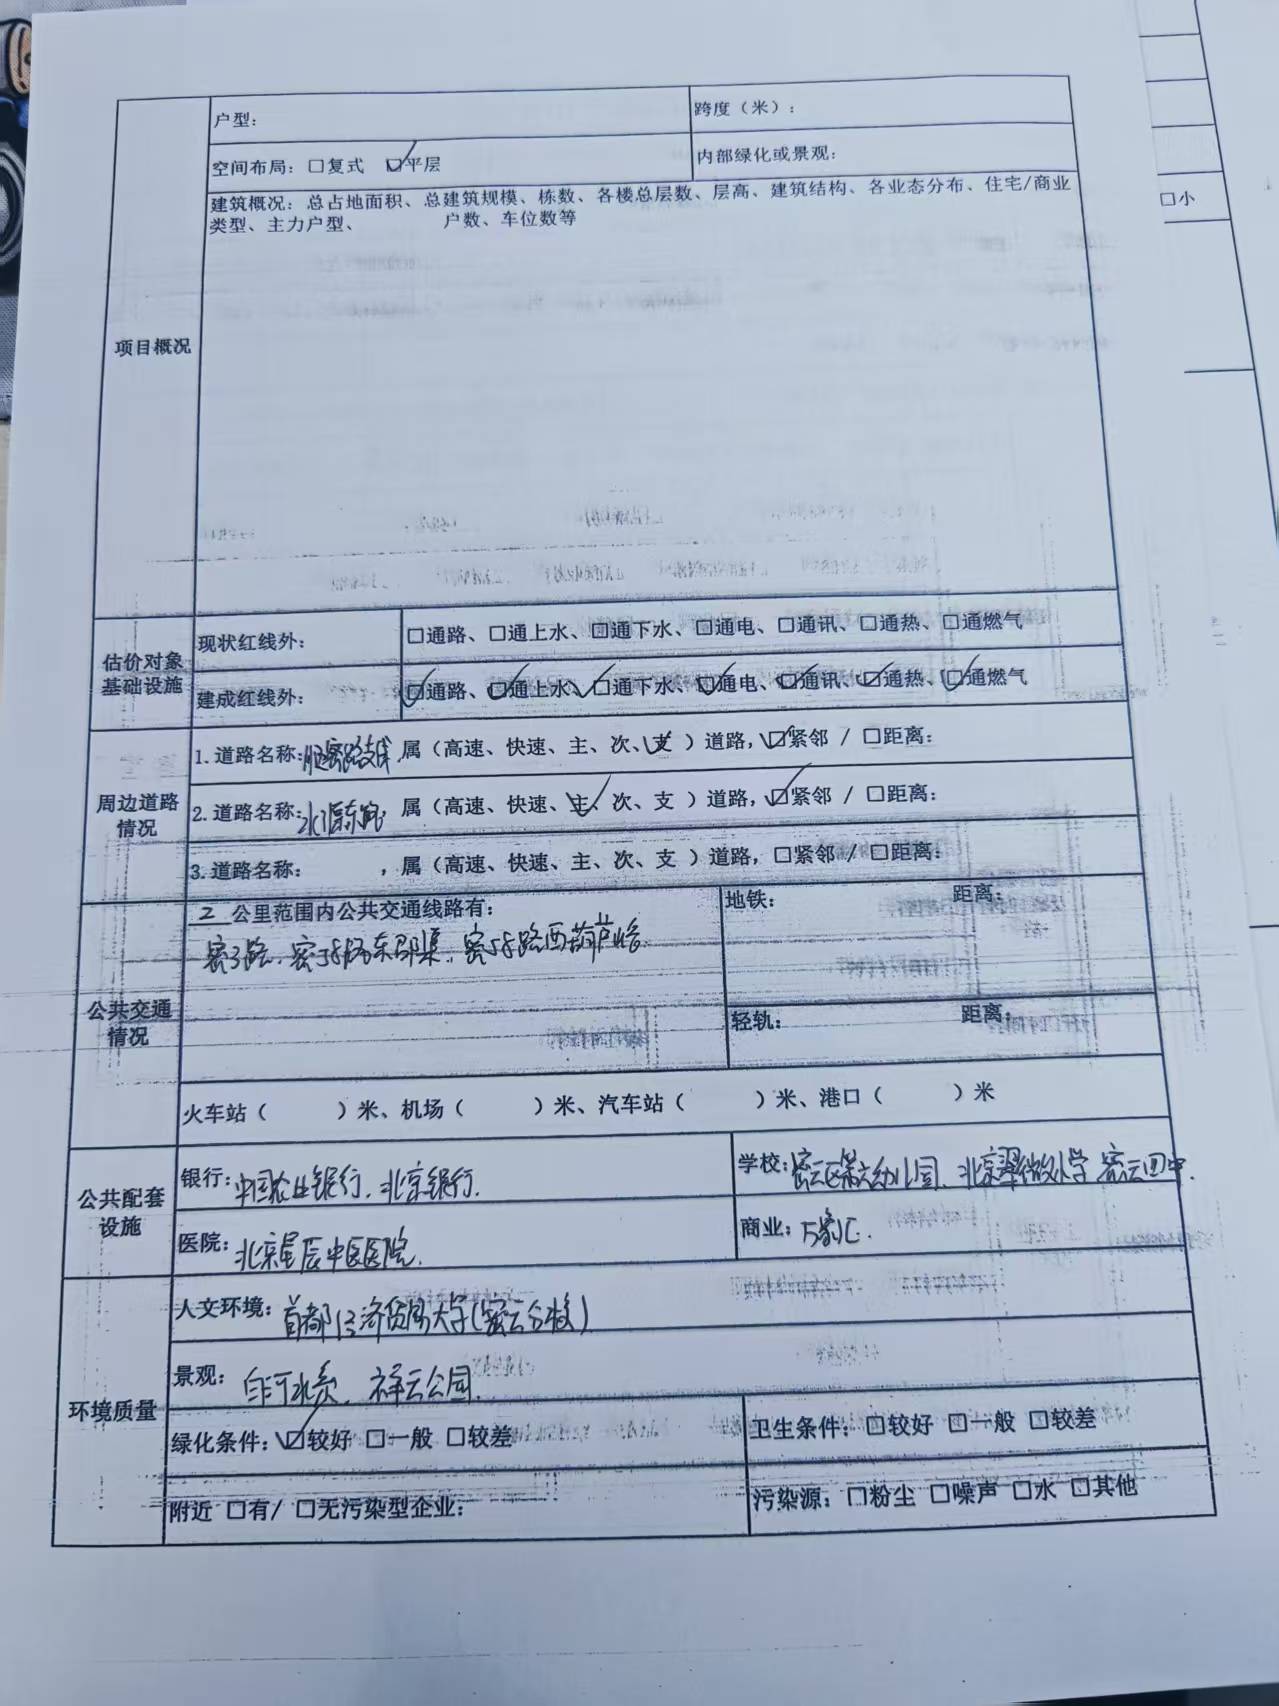 户型：
跨度（米）：
空间布局：□复式 ☑平层
内部绿化或景观：
建筑概况：总占地面积、总建筑规模、栋数、各楼总层数、层高、建筑结构、各业态分布、住宅/商业
类型、主力户型、 户数、车位数等
项目概况
估价对象
基础设施
现状红线外：
□通路、□通上水、□通下水、□通电、□通讯、□通热、□通燃气
建成红线外：
☑通路、☑通上水、☑通下水、☑通电、☑通讯、☑通热、☑通燃气
周边道路
情况
1.道路名称： 属（高速、快速、主、次、支 ）道路，☑紧邻 / □距离：
2.道路名称： 属（高速、快速、主、次、支 ）道路，☑紧邻 / □距离：
3.道路名称： ，属（高速、快速、主、次、支 ）道路，□紧邻 / □距离：
公共交通
情况
2 公里范围内公共交通线路有：
密3路、密58路东邵渠、密58路西葫芦峪
地铁： 距离：
轻轨： 距离：
火车站（ ）米、机场（ ）米、汽车站（ ）米、港口（ ）米
公共配套
设施
银行：中国农业银行、北京银行.
学校：密云区第六幼儿园、北京翠微小学 密云四中.
医院：北京星辰中医医院.
商业：万象汇.
环境质量
人文环境：首都经济贸易大学（密云分校）
景观：白河水系、祥云公园
绿化条件：☑较好 □一般 □较差
卫生条件：□较好 □一般 □较差
附近 □有/ □无污染型企业：
污染源：□粉尘 □噪声 □水 □其他
□小